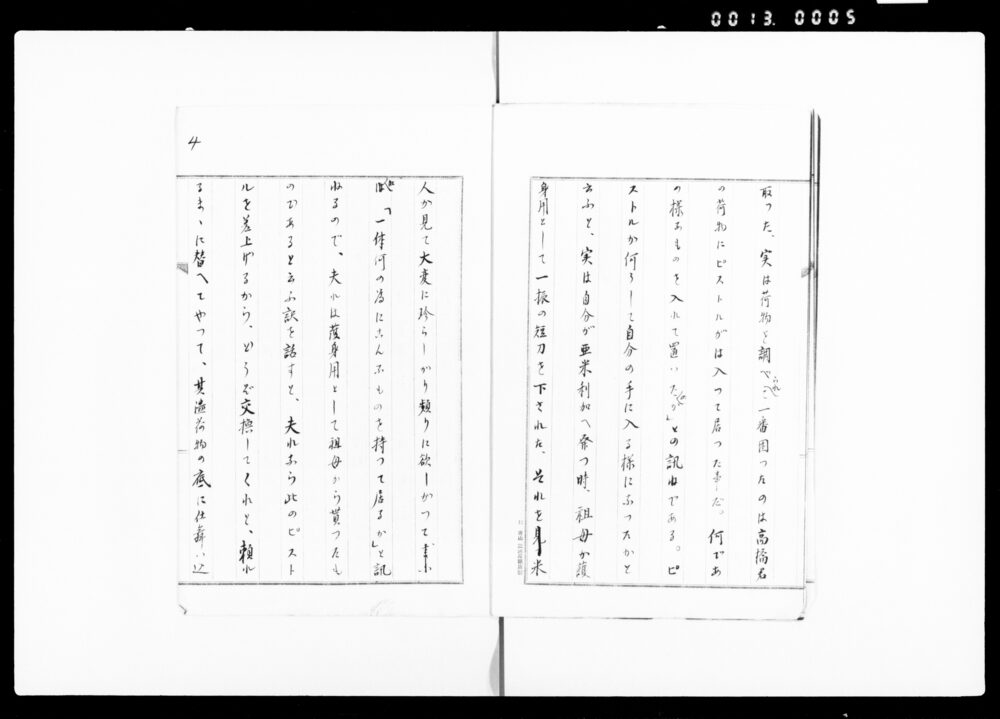 0013.0005
取つた、実は荷物を調べられ、一番困つたのは高橋君
の荷物にピストルがは入つて居つた事だ。何であ
の様なものを入れて置いたか」との訊ねである。ピ
ストルが何うして自分の手に入る様になつたかと
云ふと、実は自分が亜米利加へ発つ時、祖母が護
身用として一振の短刀を下された、それを見て米
4
人が見て大変に珍らしがり頻りに欲しがつて
「一体何の為にこんなものを持つて居るか」と訊
ねるので、夫れは護身用として祖母から貰つたも
のであると云ふ訳を話すと、夫れなら此のピスト
ルを差上げるから、どうぞ交換してくれと、頼れ
るまゝに替へてやつて、其儘荷物の底に仕舞い込